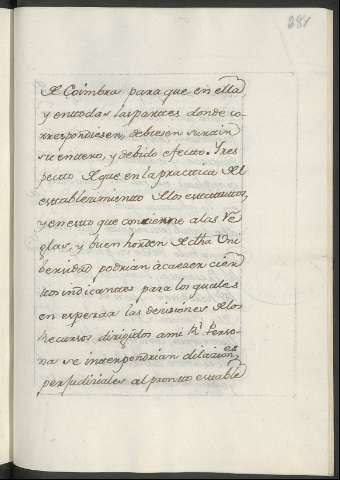 281
de Coimbra para que en ella
y en todas las partes donde co-
rrespondiesen, debiesen surtir
su entero, y debido efecto. Y res
pecto de que en la practica del
establecimiento de los estatutos,
y en esto que concierne a las Re
glas, y buen horden de dha Uni
bersidad podrian acaezer cier
tos indicantes para los quales
en esperar las decisiones de los
Recursos dirigidos a mi Rl Perso-
na se interpondrian dilaciones
perjudiciales al pronto estable